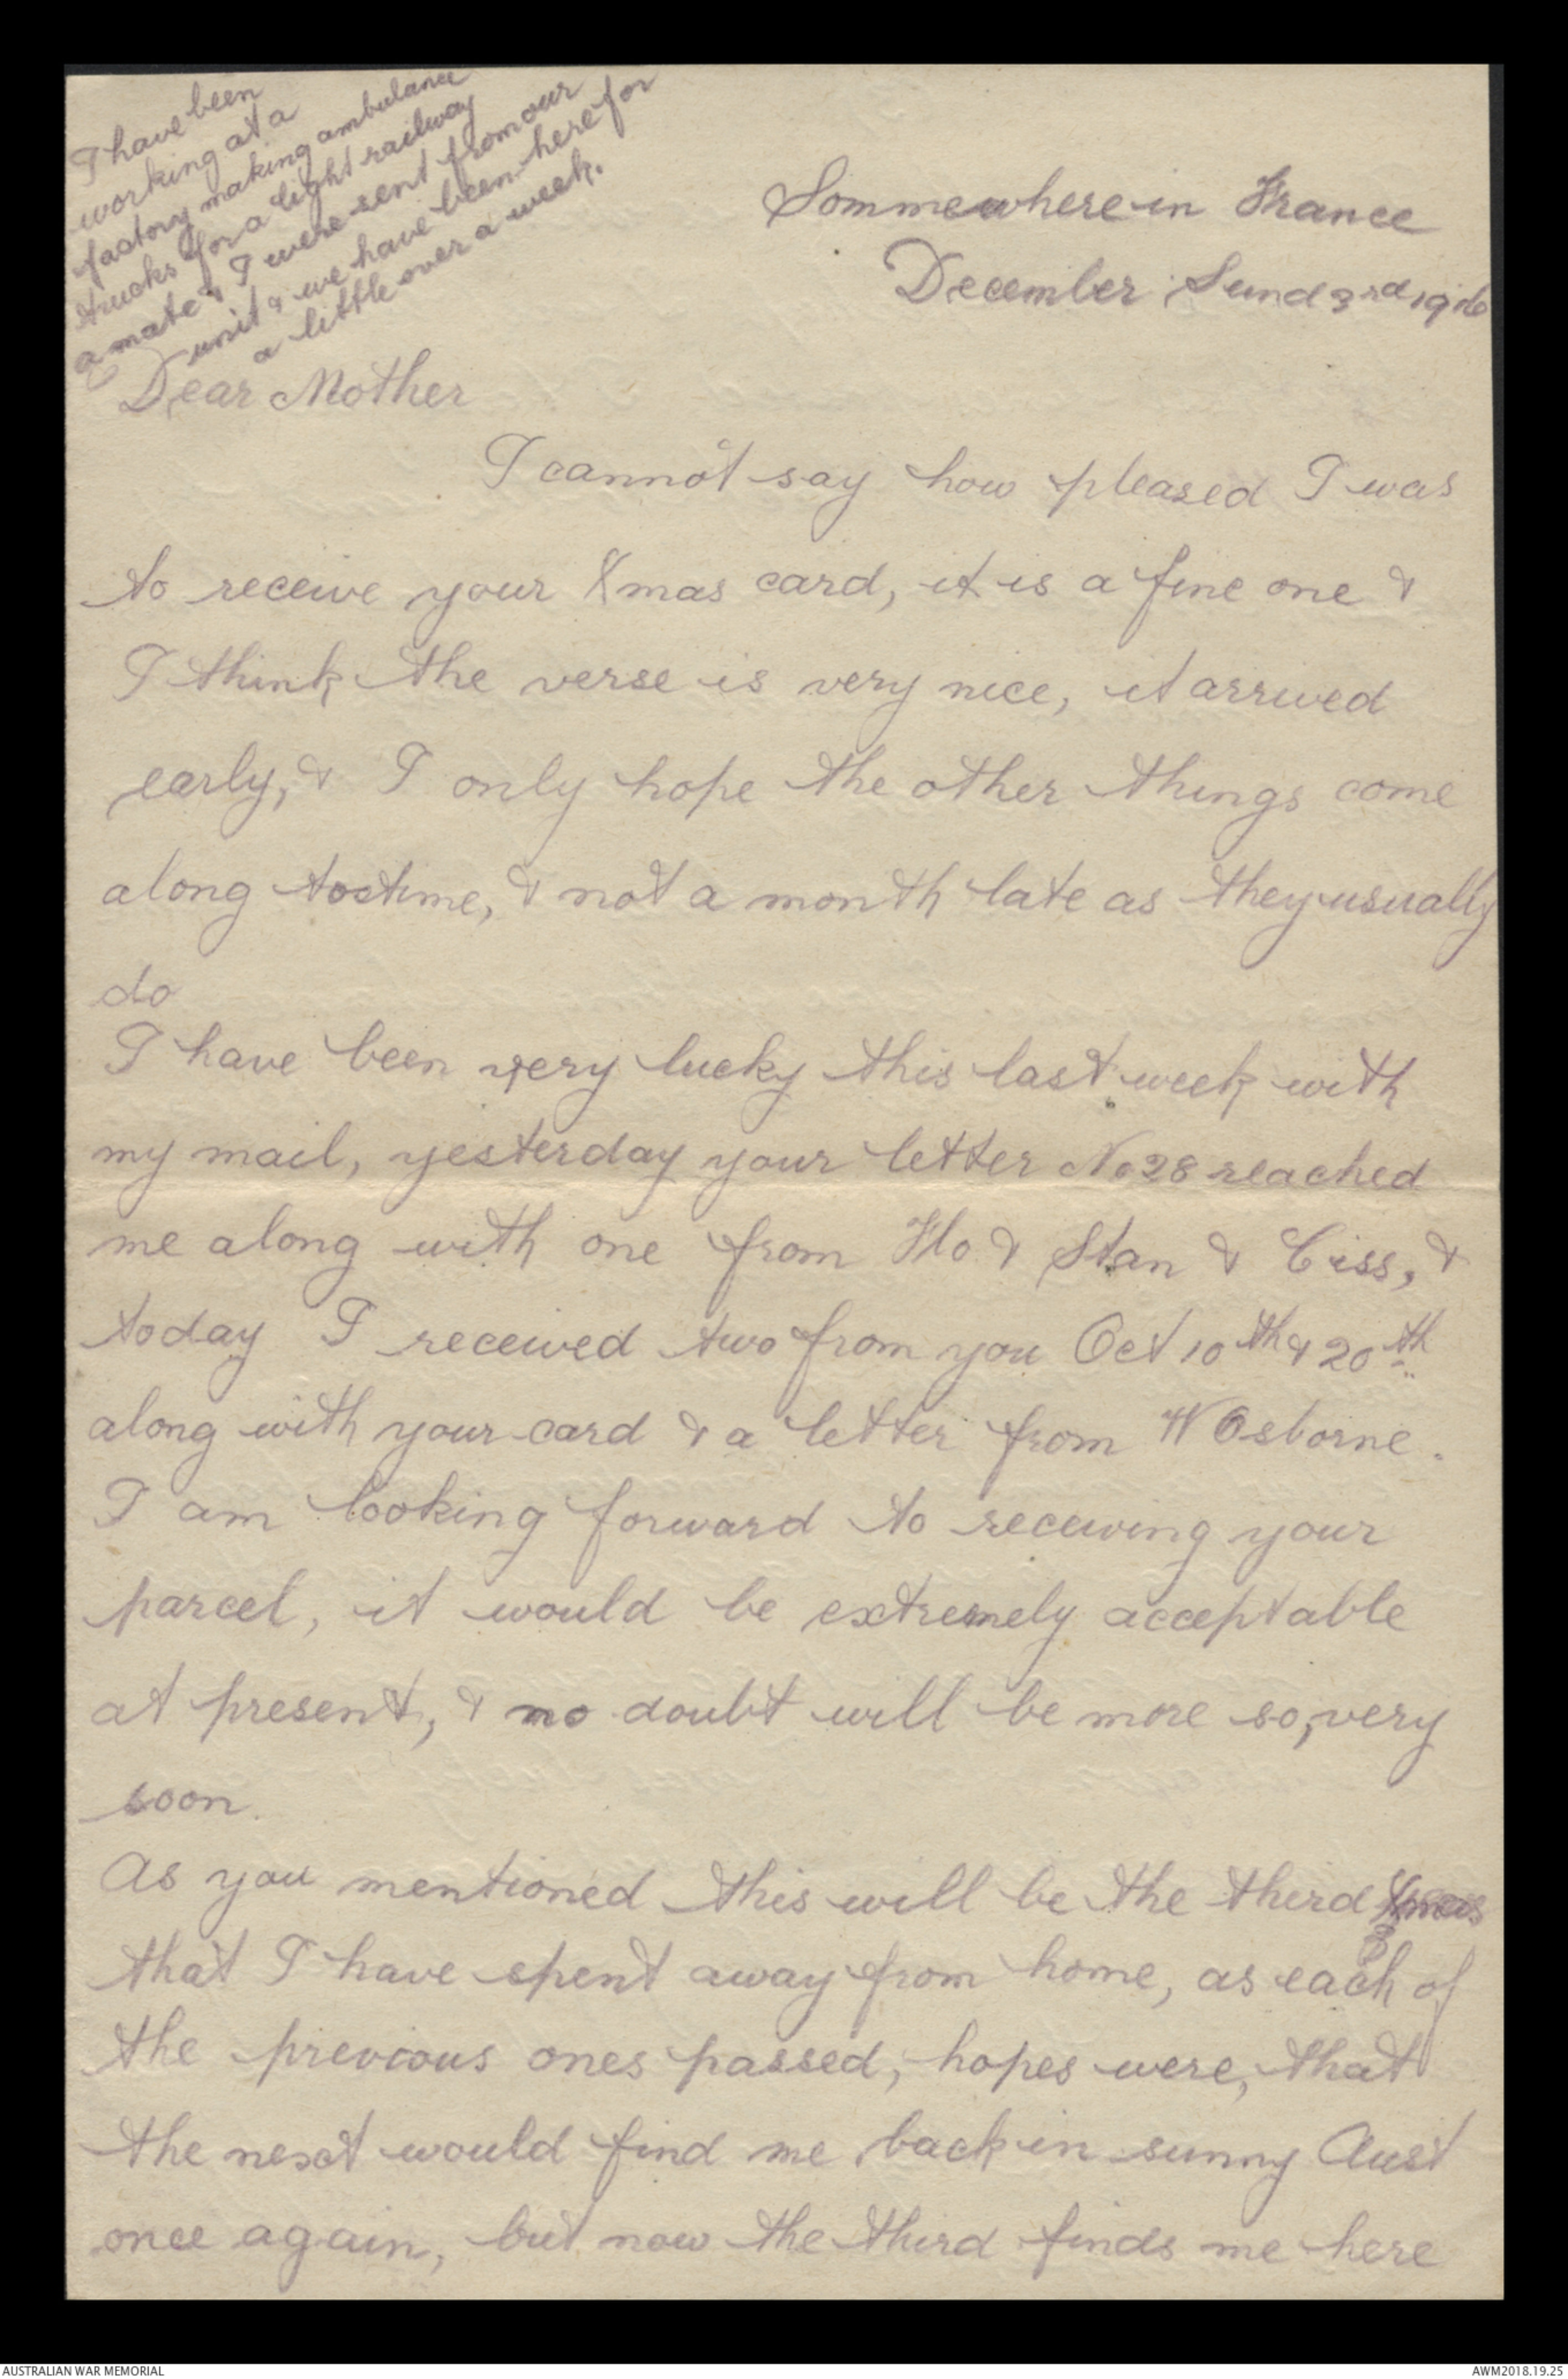 I have been
working at a
factory making ambulance
trucks for a light railway
a mate & I were sent from our
unit, & we have been here for
a little over a week.
Sommewhere in France
December Sund 3rd 1916
Dear Mother
I cannot say how pleased I was
to receive your Xmas card, it is a fine one &
I think the verse is very nice, it arrived
early, & I only hope the other things come
along to time, & not a month late as they usually
do
I have been very lucky this last week with
my mail, yesterday your letter No 28 reached
me along with one from Flo & Stan & Ciss, &
today I received two from you Oct 10th & 20th
along with your card & a letter from W Osborne.
I am looking forward to receiving your
parcel, it would be extremely acceptable
at present, & no doubt will be more so, very
soon.
As you mentioned this will be the third Xmas
that I have spent away from home, as each of
the previous ones passed, hopes were, that
the next would find me back in sunny Aust
once again, but now the third finds me here
AUSTRALIAN WAR MEMORIAL
AWM2018.19.25